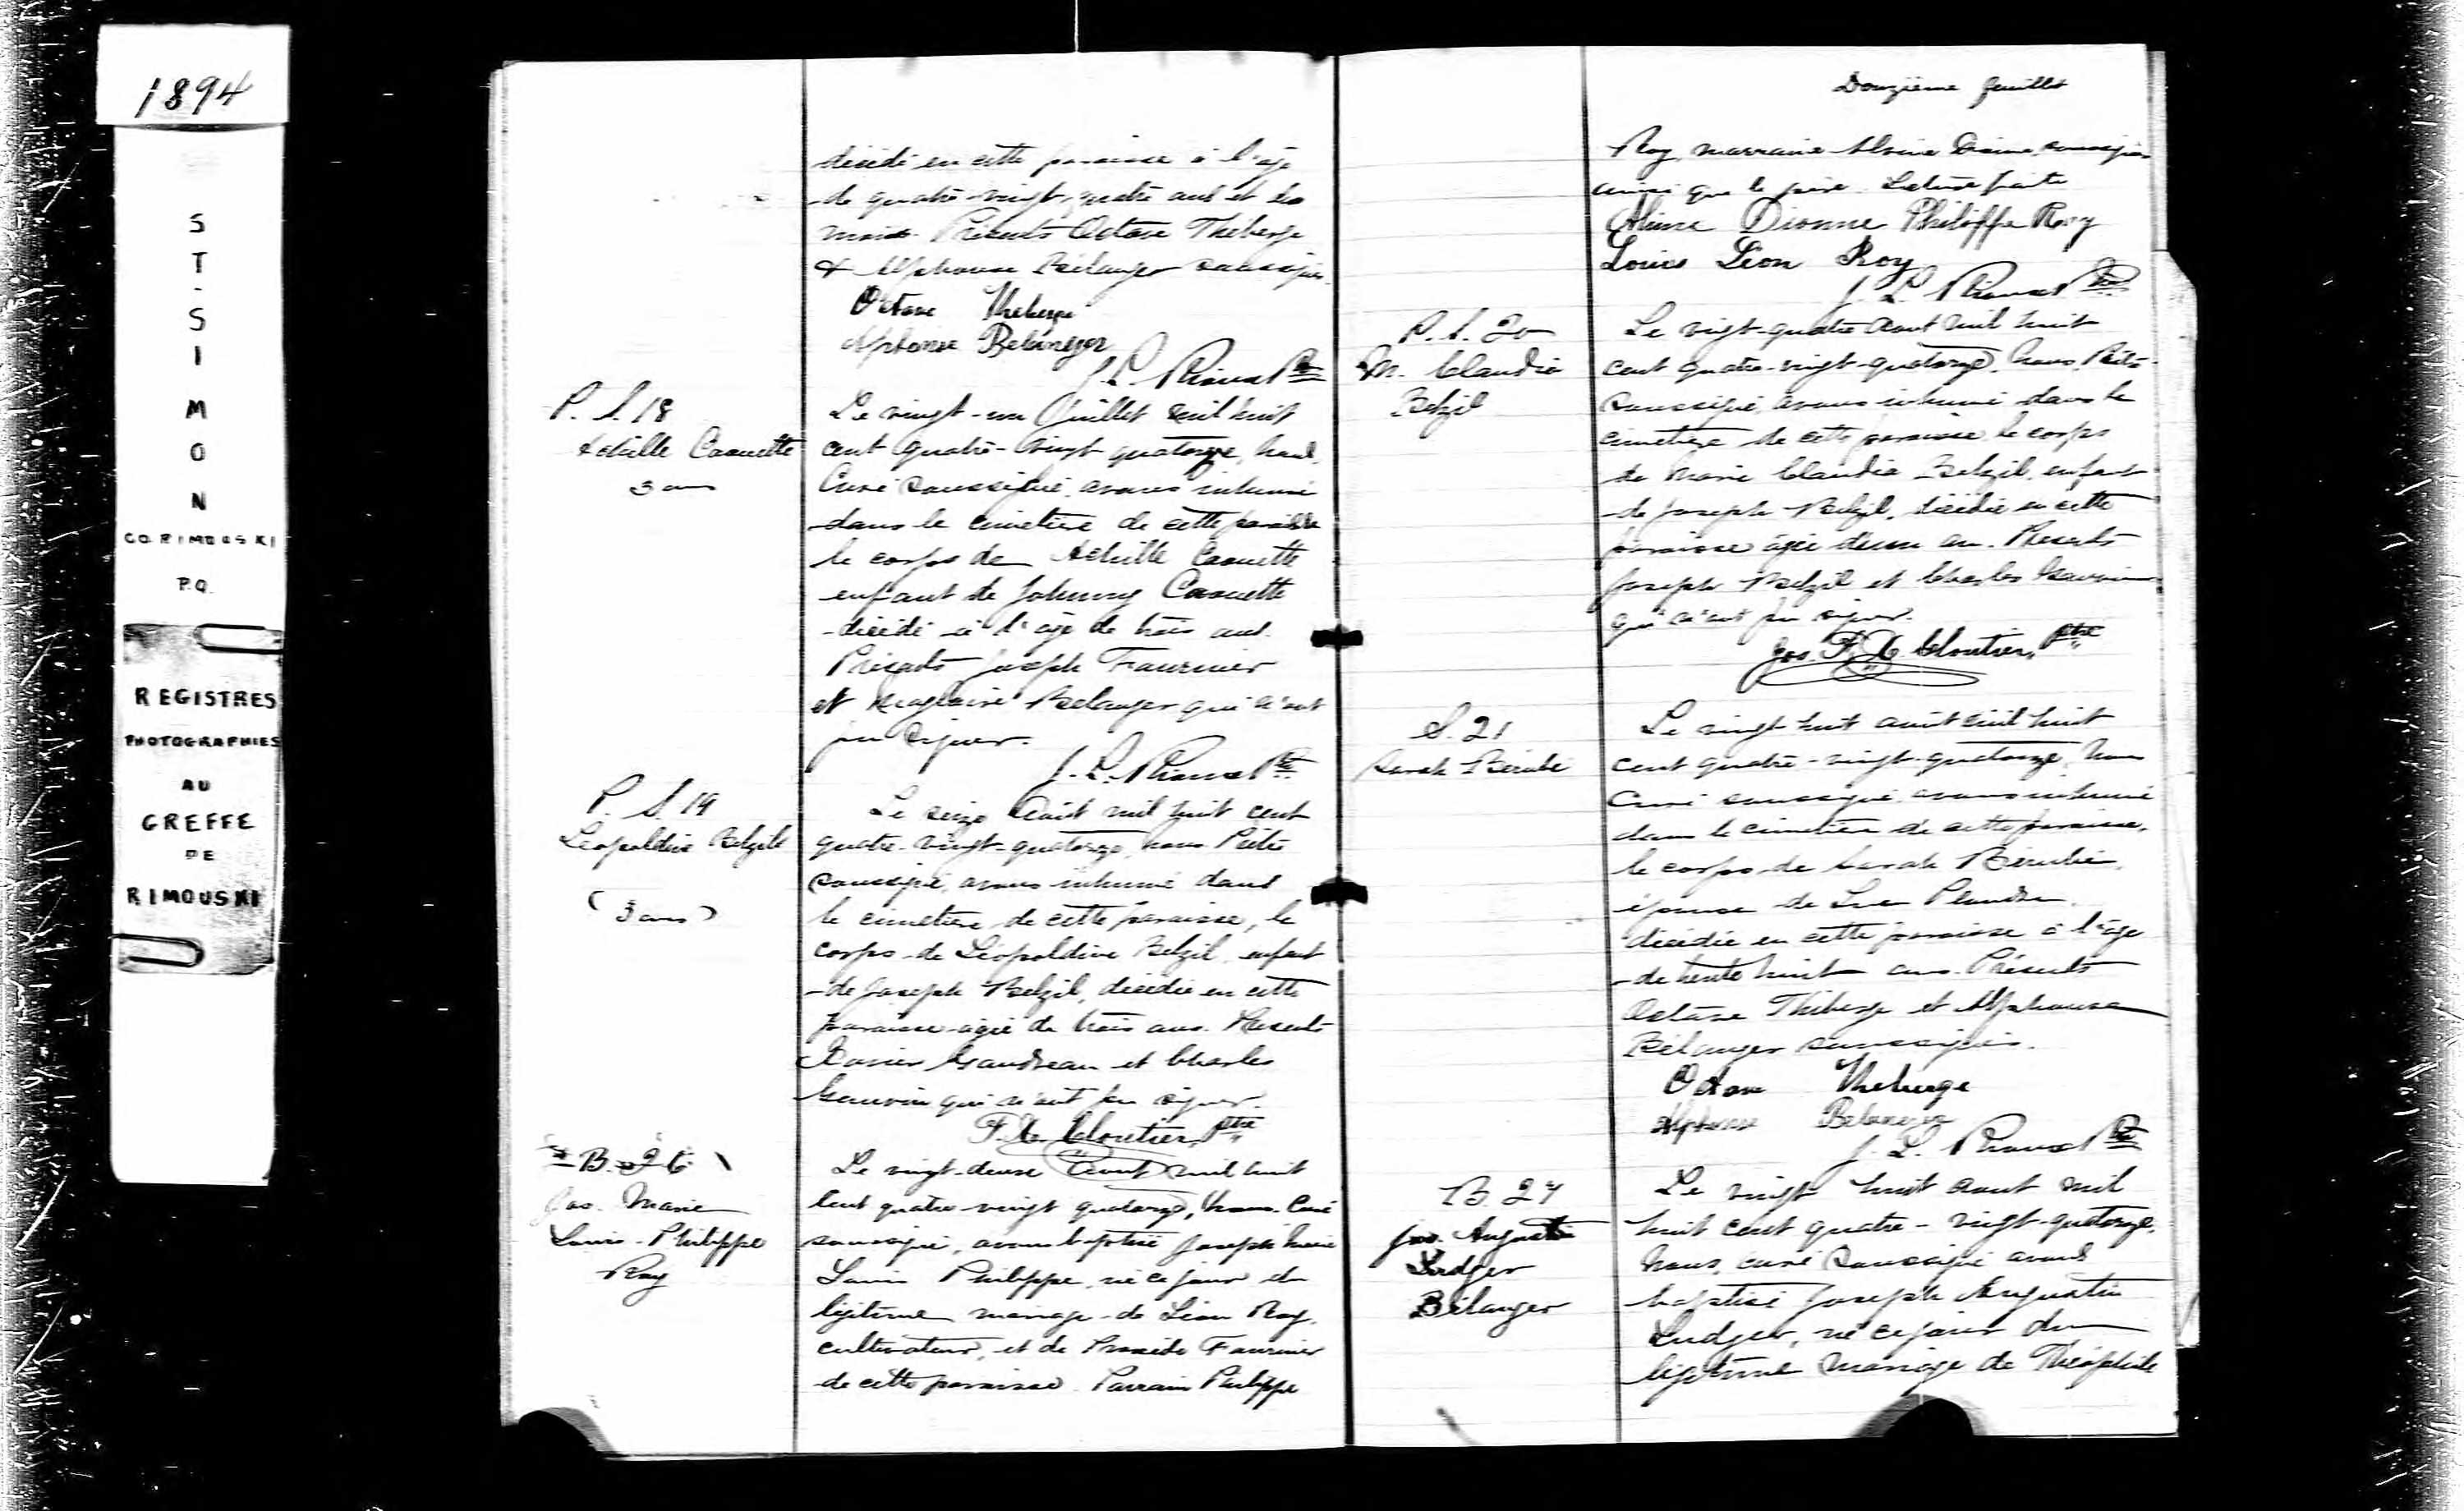 1894
ST-SIMON
CO. RIMOUSKI
P.Q.
REGISTRES
PHOTOGRAPHIES
AU
GREFFE
DE
RIMOUSKI
décédé en cette paroisse à l'âge
de quatre-vingt-quatre ans et six
mois. Présents Octave Théberge
& Alphonse Bélanger soussignés.
Octave Theberge
Alphonse Belanger
J. L. Ptre
P. S. 18
Achille Caouette
3 ans
Le vingt-un Juillet mil huit
cent quatre-vingt quatorze, nous,
Curé soussigné, avons inhumé
dans le cimetière de cette paroisse
le corps de Achille Caouette
enfant de Johnny Caouette
décédé à l'âge de trois ans.
Présents Joseph Fournier
et Magloire Belanger qui n'ont
pu signer.
J. L. Ptre
P. S. 19
Léopoldine Belzil
(3 ans)
Le seize Août mil huit cent
quatre-vingt-quatorze, nous Prêtre
soussigné, avons inhumé dans
le cimetière de cette paroisse, le
corps de Léopoldine Belzil, enfant
de Joseph Belzil, décédée en cette
paroisse âgée de trois ans. Présents
Xavier Gaudreau et Charles
Gauvin qui n'ont pu signer.
F. X. Cloutier, ptre
B. 26
Jos. Marie
Louis-Philippe
Roy
Le vingt-deux Aout mil huit
cent quatre-vingt quatorze, nous Curé
soussigné, avons baptisé Joseph Marie
Louis Philippe, né ce jour du
légitime mariage de Léon Roy,
cultivateur, et de Praxède Fournier
de cette paroisse. Parrain Philippe
Douzième feuillet
Roy, marraine Dionne, soussignés
ainsi que le père. Lecture faite
Dionne Philippe Roy
Louis Léon Roy
J. L. Ptre
P. S. 20
M. Claudia
Belzil
Le vingt-quatre Aout mil huit
cent quatre-vingt-quatorze, nous, Prêtre
soussigné, avons inhumé dans le
cimetière de cette paroisse le corps
de Marie Claudia Belzil, enfant
de Joseph Belzil, décédée en cette
paroisse âgée d'un an. Présents
Joseph Belzil et Charles Gauvin
qui n'ont pu signer.
Jos. F. X. Cloutier, ptre
S. 21
Sarah Bérubé
Le vingt huit août mil huit
cent quatre-vingt-quatorze, nous
Curé soussigné, avons inhumé
dans le cimetière de cette paroisse,
le corps de Sarah Bérubé,
épouse de Luc Plourde,
décédée en cette paroisse à l'âge
de trente huit ans. Présents
Octave Théberge et Alphonse
Bélanger soussignés.
Octave Theberge
Alphonse Belanger
J. L. Ptre
B. 27
Jos. Augustin
Ludger
Bélanger
Le vingt huit aout mil
huit cent quatre-vingt-quatorze,
nous, curé soussigné avons
baptisé Joseph Augustin
Ludger, né ce jour du
légitime mariage de Théophile